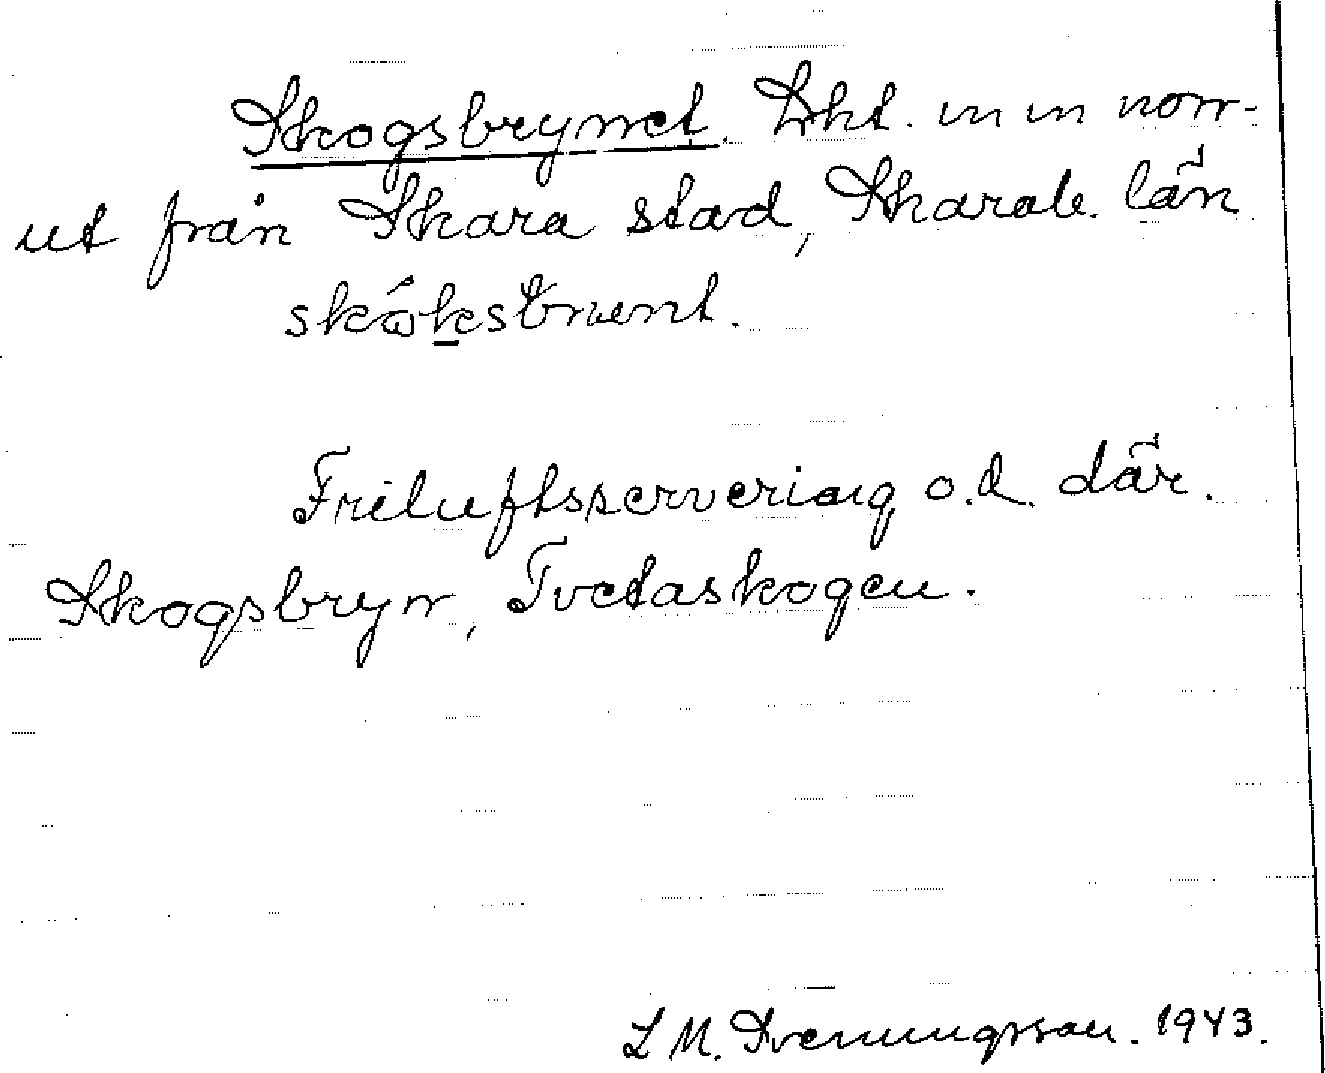 Skogsbrynet. Lkt. in in norr-
ut från Skara stad, Skarab. län
Friluftsservering o.d. där.
Skogsbryn, Tvetaskogen.
L M. Svenungsson. 1943.